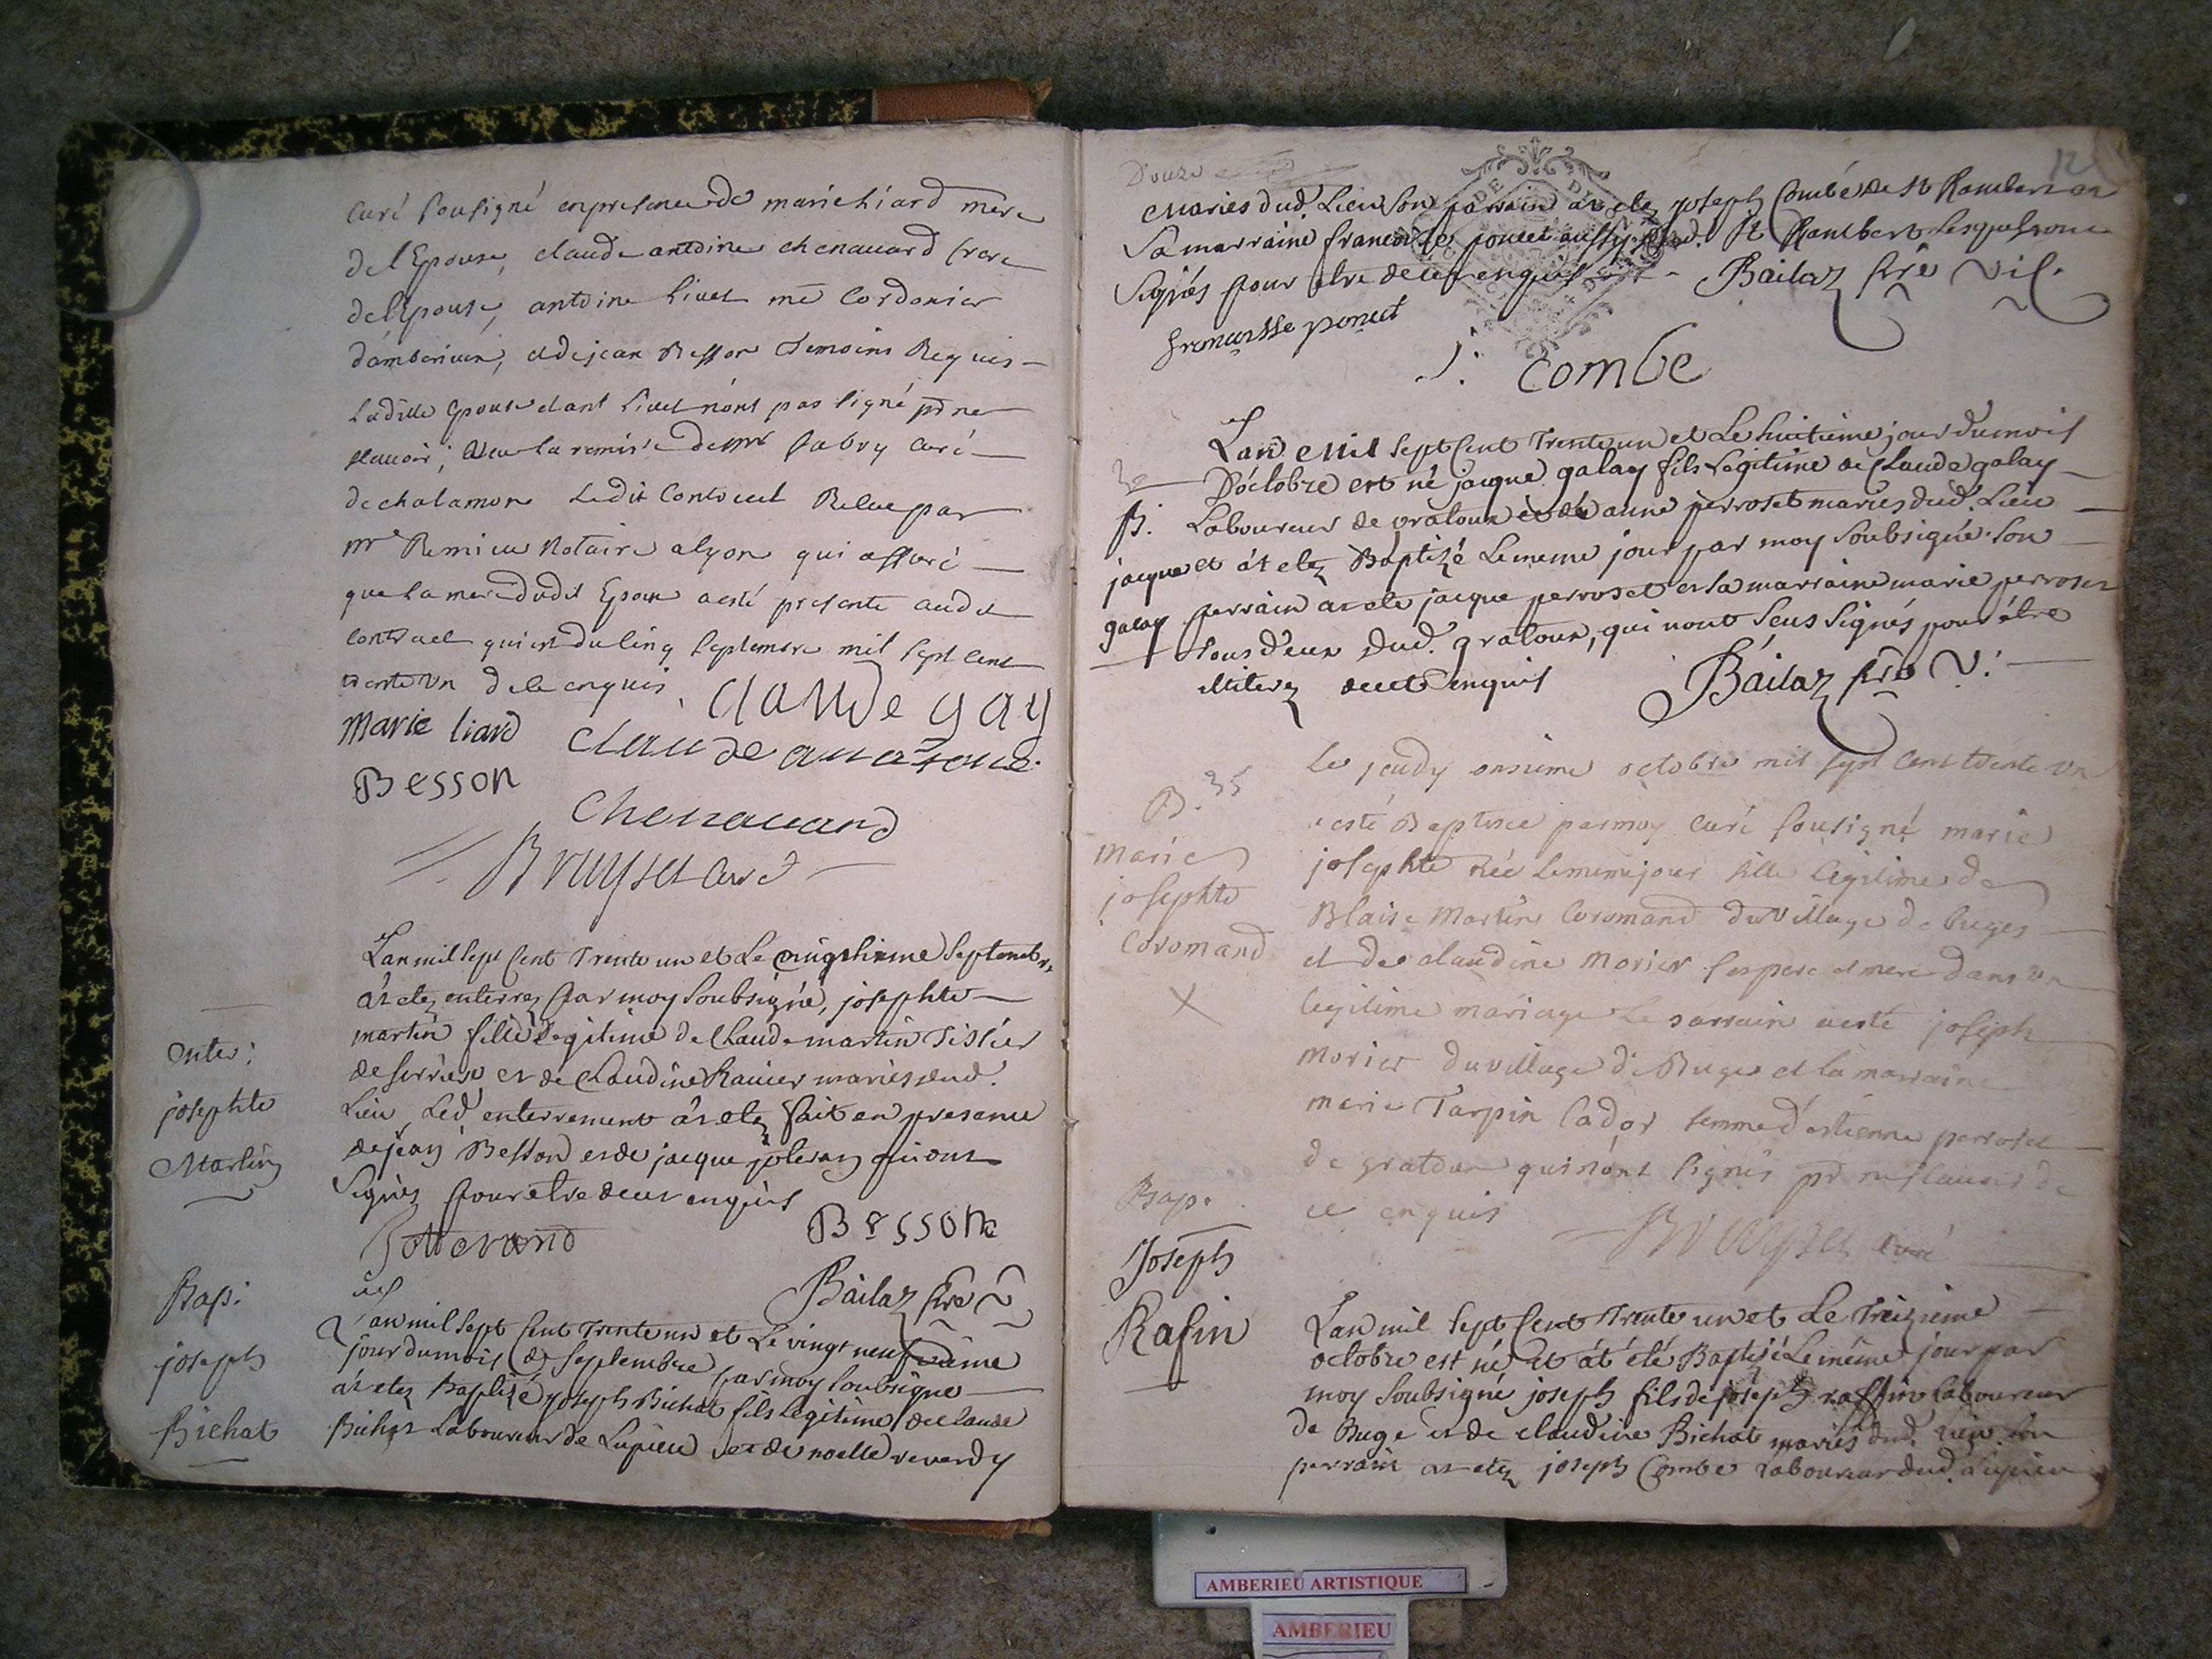 curé sousigné en presence de marie hiard mere
de l'Epouse, claude antoine chenavard frere
de l'Epouse, antoine livet me Cordonier
d'amberieux, et de jean Besson temoins Requis
Ladite Epouse et ant livet n'ont pas signé pr ne
scavoir; Veu la remise de mr fabry curé
de chalamon Ledit Contract Relue par
mr Remieu Notaire a lyon qui assure
que la mere dudit Epoux a esté presente audit
contract qui est du cinq septembre mil sept cent
trente vn de ce enquis.
claude gay
Marie liard
claude antoine
Besson
Chenavard
Bruysset curé
L'an mil sept Cent Trente un et Le septembre
at etez enterrez par moy soubsigné, josephte
martin fille Legitime de Claude martin Tistier
de et de Claudine Ravier maries dud.
Lieu, Led. enterrement at etez fait en presence
de jean Besson et de jacque joteran qui ont
Signés pour etre de ce enquis
Jotterand
Besson
Bailaz ptre V
Enter:
josephte
Martin
Bap:
joseph
Bichat
L'an mil sept Cent Trente un et Le vingt neufvieme
jour du mois de septembre par moy soubsigné
at etez Baptizé joseph Bichat fils Legitime de claude
Bichat Laboureur de Lupieu et de noelle reverdy
Douze
12
Maries dud. Lieu son parrain at etez joseph Combe de st Rambert et
Sa marraine francoise poncet aussy dud. St Rambert Lesquels ont
Signés pour etre de ce enquis
Bailaz ptre vic.
francoisse poncet
J. combe
L'an Mil sept Cent Trente un et Le huitieme jour du mois
D'octobre est né jacque galay fils Legitime de Claude galay
Laboureur de gratoux et de anne perroset maries dud. Lieu
et at etez Baptizé Le meme jour par moy Soubsigné. son
perrain at ete jacque perroset et sa marraine marie perroset
tous d'eux dud. gratoux, qui n'ont Seus Signés pour etre
illiterez de ce enquis
Bailaz ptre V.
B.
jacque
galay
Le jeudy onsieme octobre mil sept cent trente vn
a esté Baptisée par moy curé sousigné marie
josephte née le meme jour fille legitime de
Blaise Martin Coromand du village de buges
et de claudine Morier ses pere et mere dans vn
legitime mariage Le parrain a esté joseph
Morier du village de Buges et la marraine
marie Tarpin Cador femme d'estienne perroset
de gratoux qui n'ont signés pr ne scavoir de
ce enquis
Bruysset curé
B. 35
Marie
josephte
Coromand
X
Bap.
Joseph
Rafin
L'an mil sept Cent Trente un et Le Treizieme
octobre est né et at eté Baptizé Le même jour par
moy Soubsigné joseph fils de joseph raffin Laboureur
de Buge et de claudine Bichat mariés dud. Lieu son
perrain at etez joseph Combe Laboureur dud. Lupieu
AMBERIEU ARTISTIQUE
AMBERIEU